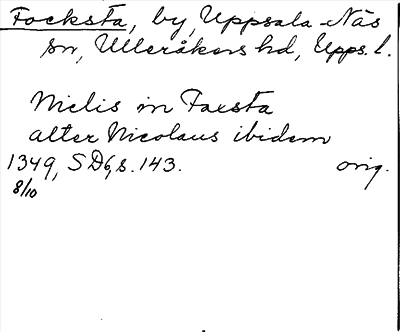 Focksta, by, Uppsala-Näs
sn, Ulleråkers hd, Upps. l.
Niclis in Faxsta
alter Nicolaus ibidem
1349, SD 6, s. 143. orig.
8/10